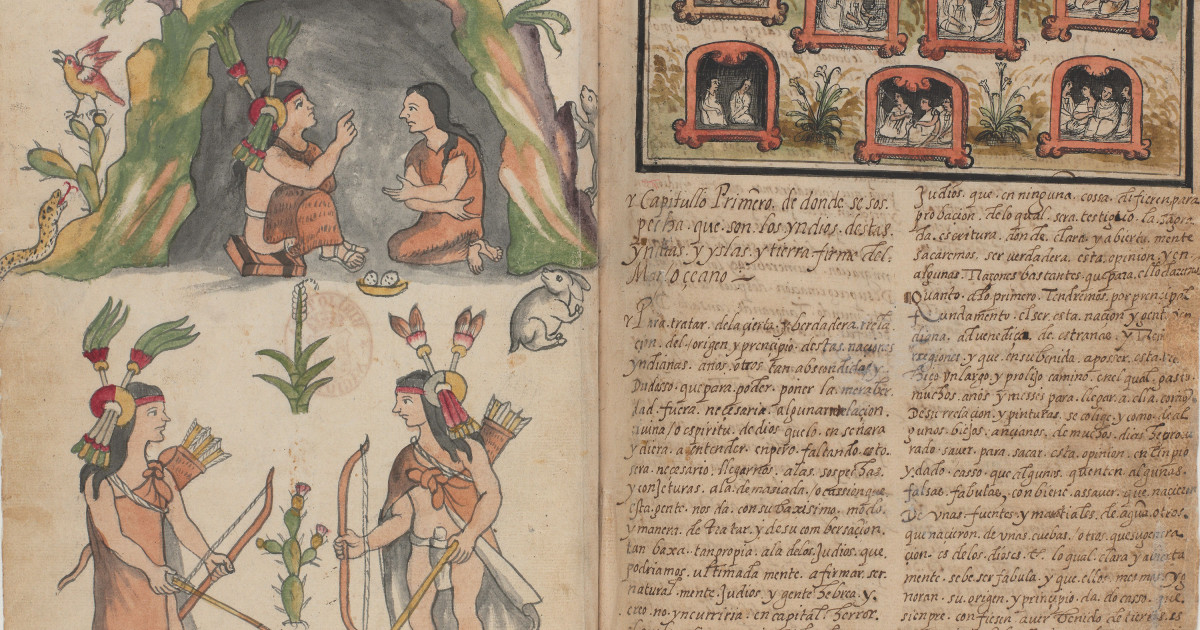 Capitullo Primero. de donde se sos
pecha. que. son. los yndios. destas.
yndias. y yslas. y tierra firme del.
Mar. occeano
Para. tratar. de la cierta. y. berdadera. rrela
çion. del. origen. y. prençipio. destas. naciones
yndianas. a nos. otros. tan. abscondida. y
Dudosso. que para. poder. poner. la. mera. ber
dad. fuera. neçesaria. alguna. rrelaçion.
diuina. /o espiritu. de dios. que lo. en señara
y diera. a entender. enpero. faltando. esto
sera. neçesario. llegarnos. a las. sospechas.
y conjeturas. a la demasiada. /o cassion. que
esta. gente. nos da. con su baxisimo. modo.
y manera. de tratar. y de su combersaçion.
tan baxa. tan propia. a la de los. Judios. que
podriamos. ultimada mente. a firmar. ser
natural. mente. Judios. y gente. hebrea. y
creo. no yncurriria. en capital. herror.
Judios. que. en ninguna. cossa. difieren. para
probaçion. de lo qual. sera. testigo. la. sagra
da. escritura. donde. clara. y abierta. mente
sacaremos. ser. verdadera. esta. opinion. y en
algunas. rraçones bastantes. que para. ello daremos
Quanto. a lo primero. tendremos. por prençipal
fundamento. el ser. esta. naçion. y gente
digna. aduenediça. de estranas.
regiones. y que. en su benida. a posser. esta.
hiço. un largo. y prolijo camino. en el qual. gasto
muchos. años. y messes. para. llegar. a ella. como
De su rrelaçion. y pinturas. se colige. y como de al
gunos. biejos. ançianos. de muchos. dias. he procu
rado. sauer. para. sacar. esta. opinion. en limpio
y dado. casso. que algunos. quenten. algunas.
falsas. fabulas. conbiene. assauer. que. naçieron
De unas. fuentes. y manantiales. de agua. otros.
que naçieron. de unas. cuebas. /otros. que su genera
çion. es de los. dioses. &c. lo qual. clara. y abierta
mente. se be. ser fabula. y que ellos. mesmos. yg
noran. su. origen. y prinçipio. dado. casso. que.
siempre. confiesan. auer. benido. de tierras. es